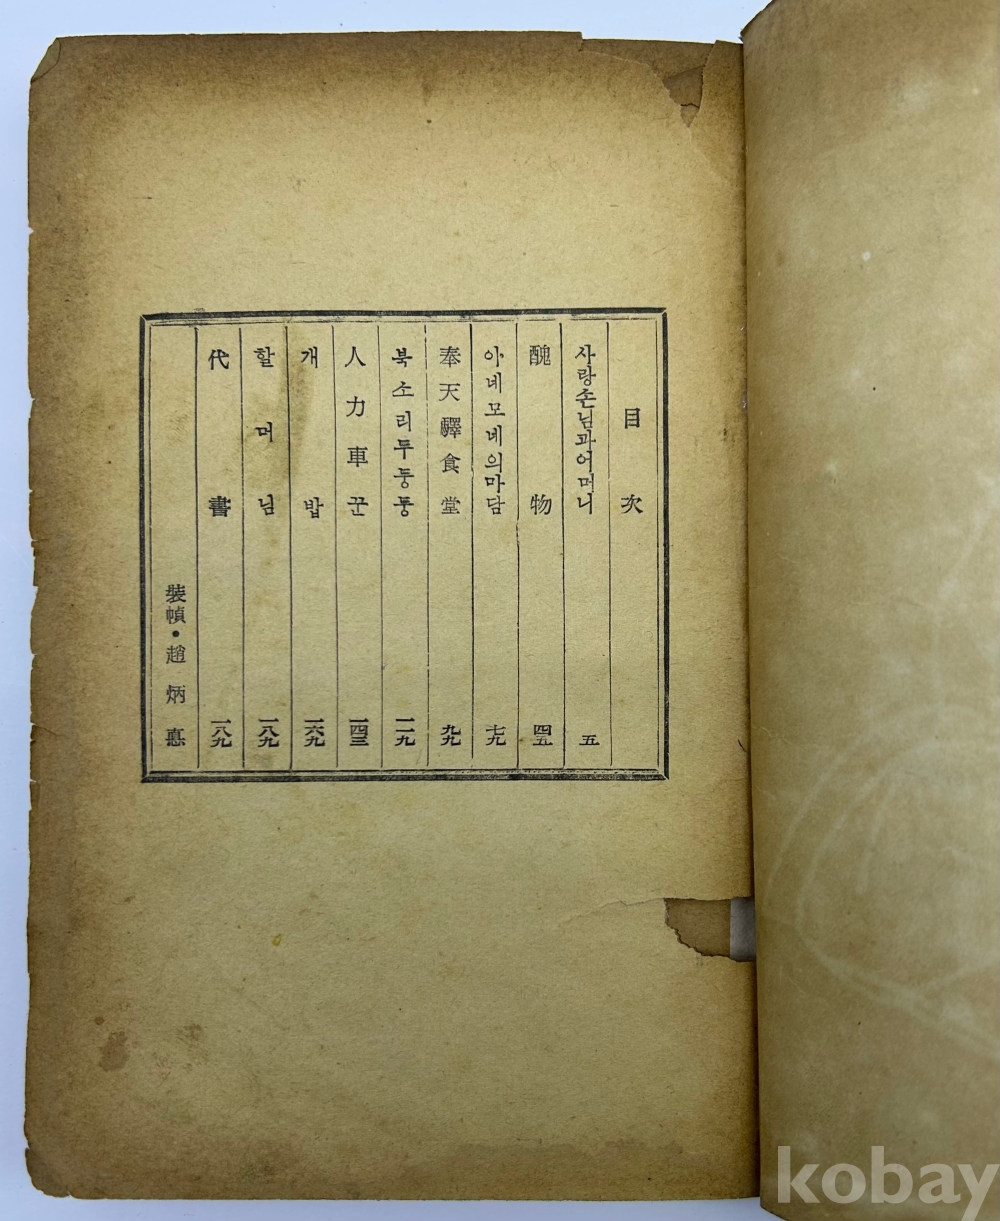 目次
사랑손님과어머니 五
醜物 四五
아네모네의마담 七九
奉天驛食堂 九九
북소리두둥둥 一一九
人力車꾼 一四三
개밥 一六九
할머님 一八九
代書 一八九
裝幀・趙炳悳
kobay